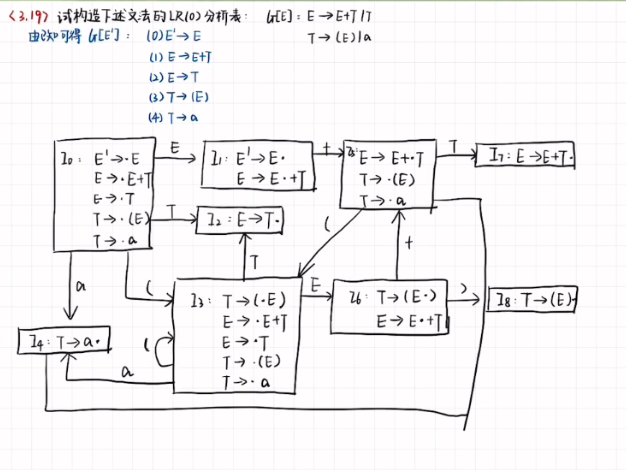 <3.19> 试构造下述文法的LR(0)分析表: G[E]: E→E+T|T
T→(E)|a
由已知可得 G[E']: (0) E'→E
(1) E→E+T
(2) E→T
(3) T→(E)
(4) T→a
I₀: E'→·E
E→·E+T
E→·T
T→·(E)
T→·a
E
I₁: E'→E·
E→E·+T
+
I₅: E→E+·T
T→·(E)
T→·a
T
I₇: E→E+T·
T
I₂: E→T·
(
+
a
(
T
I₃: T→(·E)
E→·E+T
E→·T
T→·(E)
T→·a
E
I₆: T→(E·)
E→E·+T
)
I₈: T→(E)·
I₄: T→a·
(
a